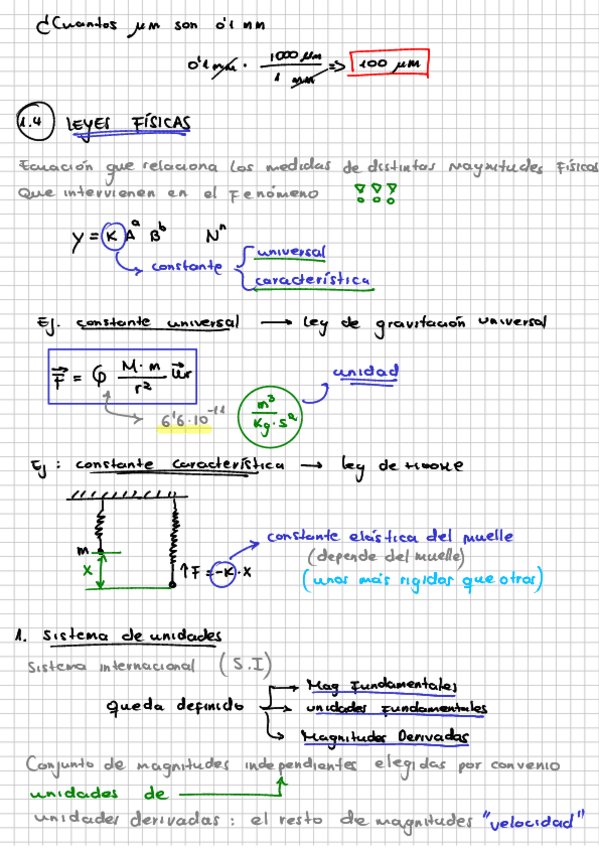 ¿Cuantos μm son 0'1 mm
0'1 mm · 1000 μm / 1 mm => 100 μm
1.4 LEYES FÍSICAS
Ecuación que relaciona las medidas de distintas magnitudes Físicas
Que intervienen en el Fenómeno
y = K Aᵃ Bᵇ Nⁿ
constante { universal
característica
Ej. constante universal → Ley de gravitación universal
F = G M·m / r² ur
unidad
6'6·10⁻¹¹ m³ / Kg·s²
Ej : constante característica → Ley de Hooke
m
x
↑F = -K·x
constante elástica del muelle
(depende del muelle)
(unos más rígidos que otros)
1. Sistema de unidades
Sistema internacional (S.I)
Queda definido → Mag Fundamentales
→ unidades Fundamentales
→ Magnitudes Derivadas
Conjunto de magnitudes independientes elegidas por convenio
unidades de
unidades derivadas : el resto de magnitudes "velocidad"